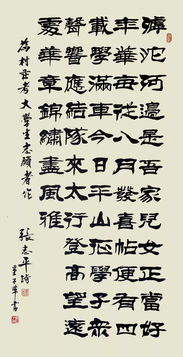 滹沱河邊是吾家兒女正當好
年華每從八月發喜帖便有四
載學滿車今日平山莊學子眾
聲響應結隊來太行登高望遠
處華章錦繡盡風雅
為村莊考大學生志願者作
張志平詩